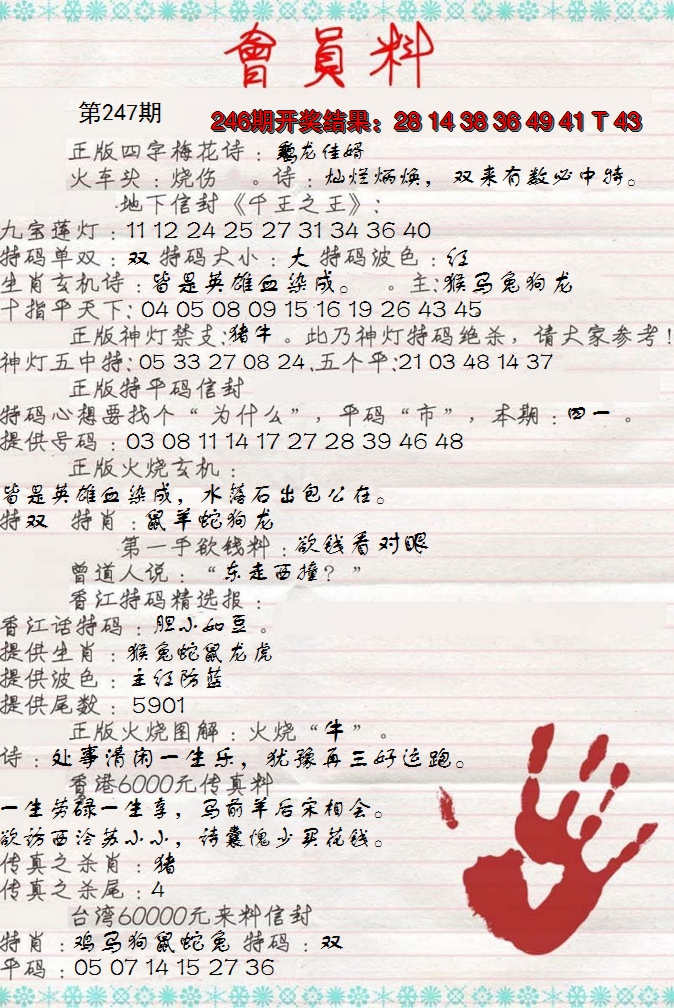 會員料
第247期
246期开奖结果：28 14 38 36 49 41 T 43
正版四字梅花诗：鸡龙佳婿
火车头：烧伤 。诗：灿烂炳焕，双来有数必中特。
地下信封《千王之王》：
九宝莲灯：11 12 24 25 27 31 34 36 40
特码单双：双 特码大小：大 特码波色：红
生肖玄机诗：皆是英雄血染成。 。主：猴马兔狗龙
十指平天下：04 05 08 09 15 16 19 26 43 45
正版神灯禁支：猪牛 。此乃神灯特码绝杀，请大家参考！
神灯五中特：05 33 27 08 24.五个平：21 03 48 14 37
正版特平码信封
特码心想要找个“为什么”，平码“市”，本期：四一 。
提供号码：03 08 11 14 17 27 28 39 46 48
正版火烧玄机：
皆是英雄血染成，水落石出包公在。
特双 特肖：鼠羊蛇狗龙
第一手欲钱料：欲钱看对眼
曾道人说：“东走西撞？”
香江特码精选报：
香江话特码：胆小如豆 。
提供生肖：猴兔蛇鼠龙虎
提供波色：主红防蓝
提供尾数：5901
正版火烧图解：火烧“牛” 。
诗：处事清闲一生乐，犹豫再三好运跑。
香港6000元传真料
一生劳碌一生享，马前羊后宋相会。
欲访西泠苏小小，诗囊愧少买花钱。
传真之杀肖：猪
传真之杀尾：4
台湾60000元来料信封
特肖：鸡马狗鼠蛇兔 特码：双
平码：05 07 14 15 27 36